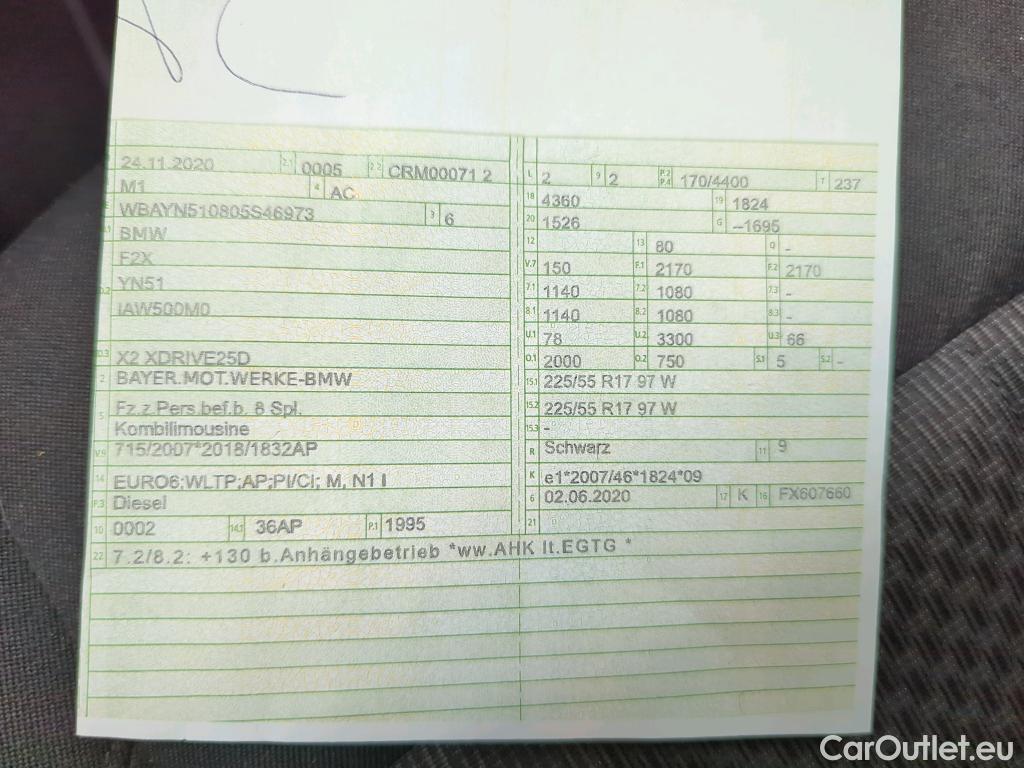 24.11.2020 2.1 0005 2.2 CRM00071 2
M1 4 AC
WBAYN510805S46973 3 6
BMW
F2X
D.2 YN51
IAW500M0
D.3 X2 XDRIVE25D
2 BAYER.MOT.WERKE-BMW
5 Fz.z.Pers.bef.b. 8 Spl.
Kombilimousine
V.9 715/2007*2018/1832AP
14 EURO6;WLTP;AP;PI/CI; M, N1 I
P.3 Diesel
10 0002 14.1 36AP P.1 1995
L 2 9 2 P.2 P.4 170/4400 T 237
18 4360 19 1824
20 1526 G –1695
12 13 80 Q -
V.7 150 F.1 2170 F.2 2170
7.1 1140 7.2 1080 7.3 -
8.1 1140 8.2 1080 8.3 -
U.1 78 U.2 3300 U.3 66
O.1 2000 O.2 750 S.1 5 S.2 -
15.1 225/55 R17 97 W
15.2 225/55 R17 97 W
15.3 -
R Schwarz 11 9
K e1*2007/46*1824*09
6 02.06.2020 17 K 16 FX607660
21
22 7.2/8.2: +130 b.Anhängebetrieb *ww.AHK lt.EGTG *
CarOutlet.eu